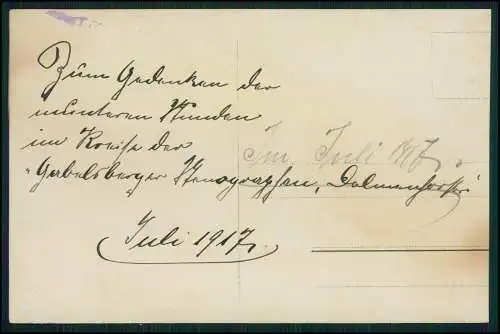 Zum Gedenken der
munteren Stunden
im Kreise der
"Gabelsberger Stenographen, Delmenhorst"
Im Juli 1917.
Juli 1917.